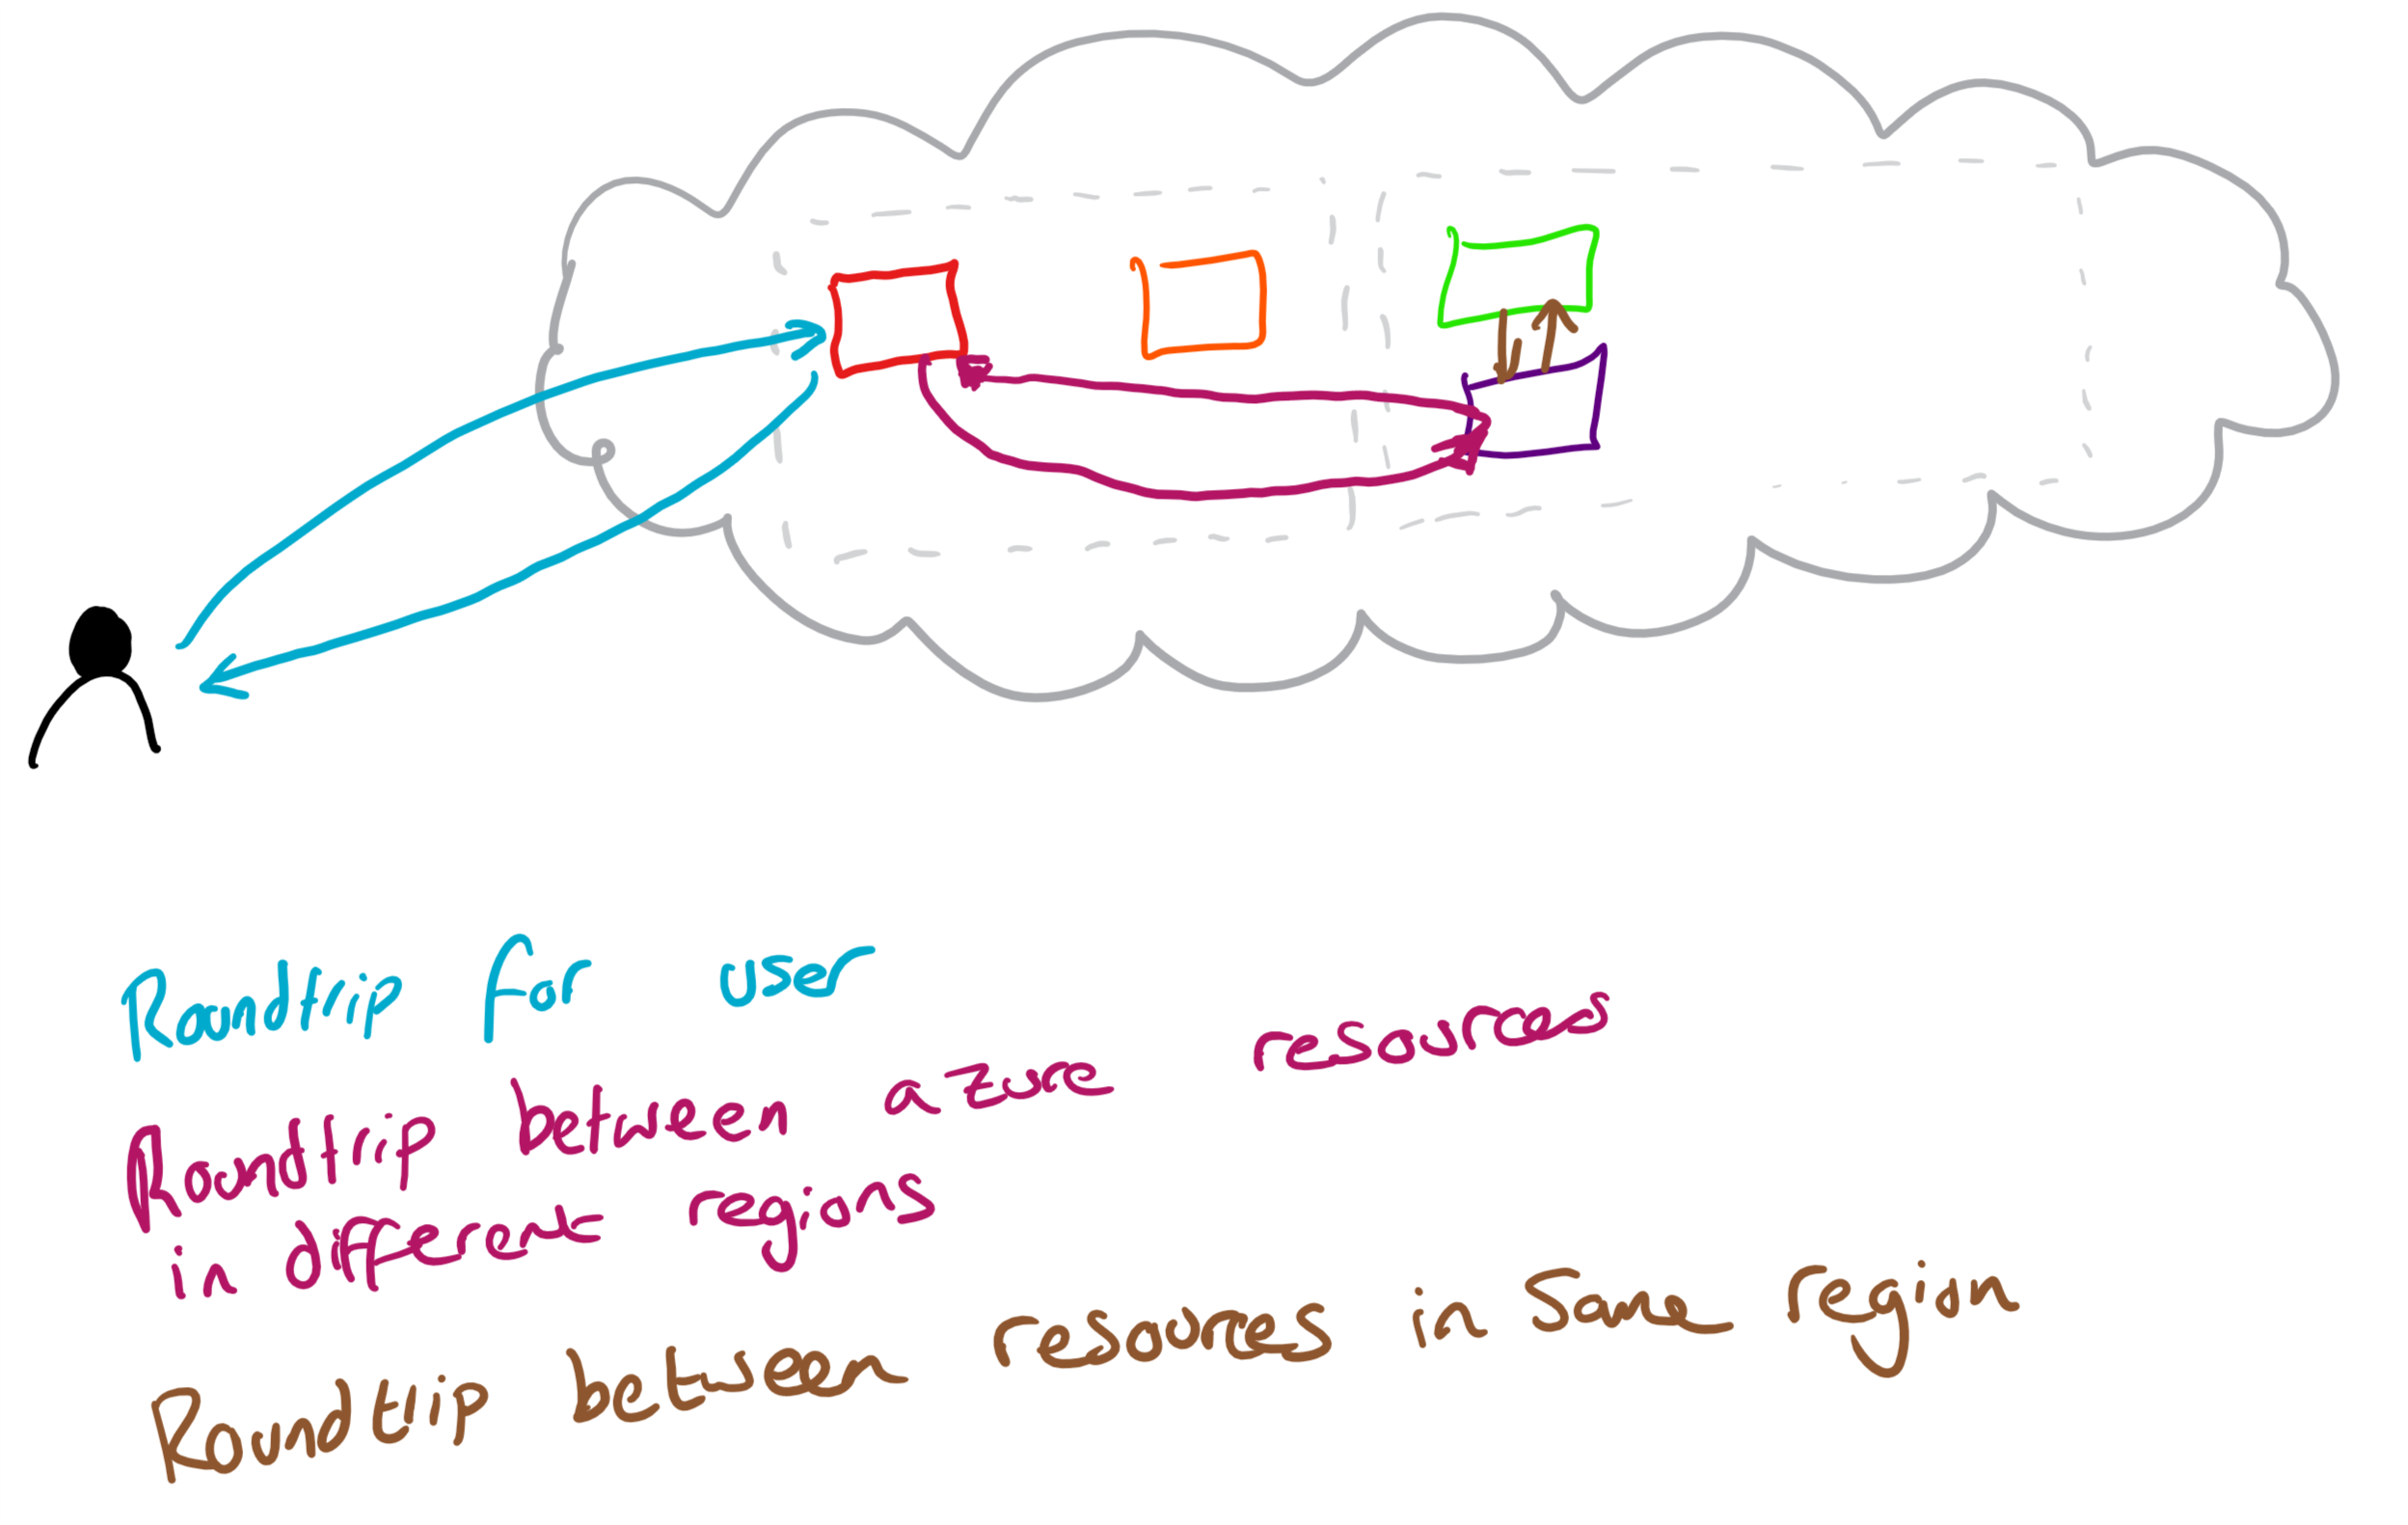 Roundtrip for user
Roundtrip between azure resources
in different regions
Roundtrip between resources in same region